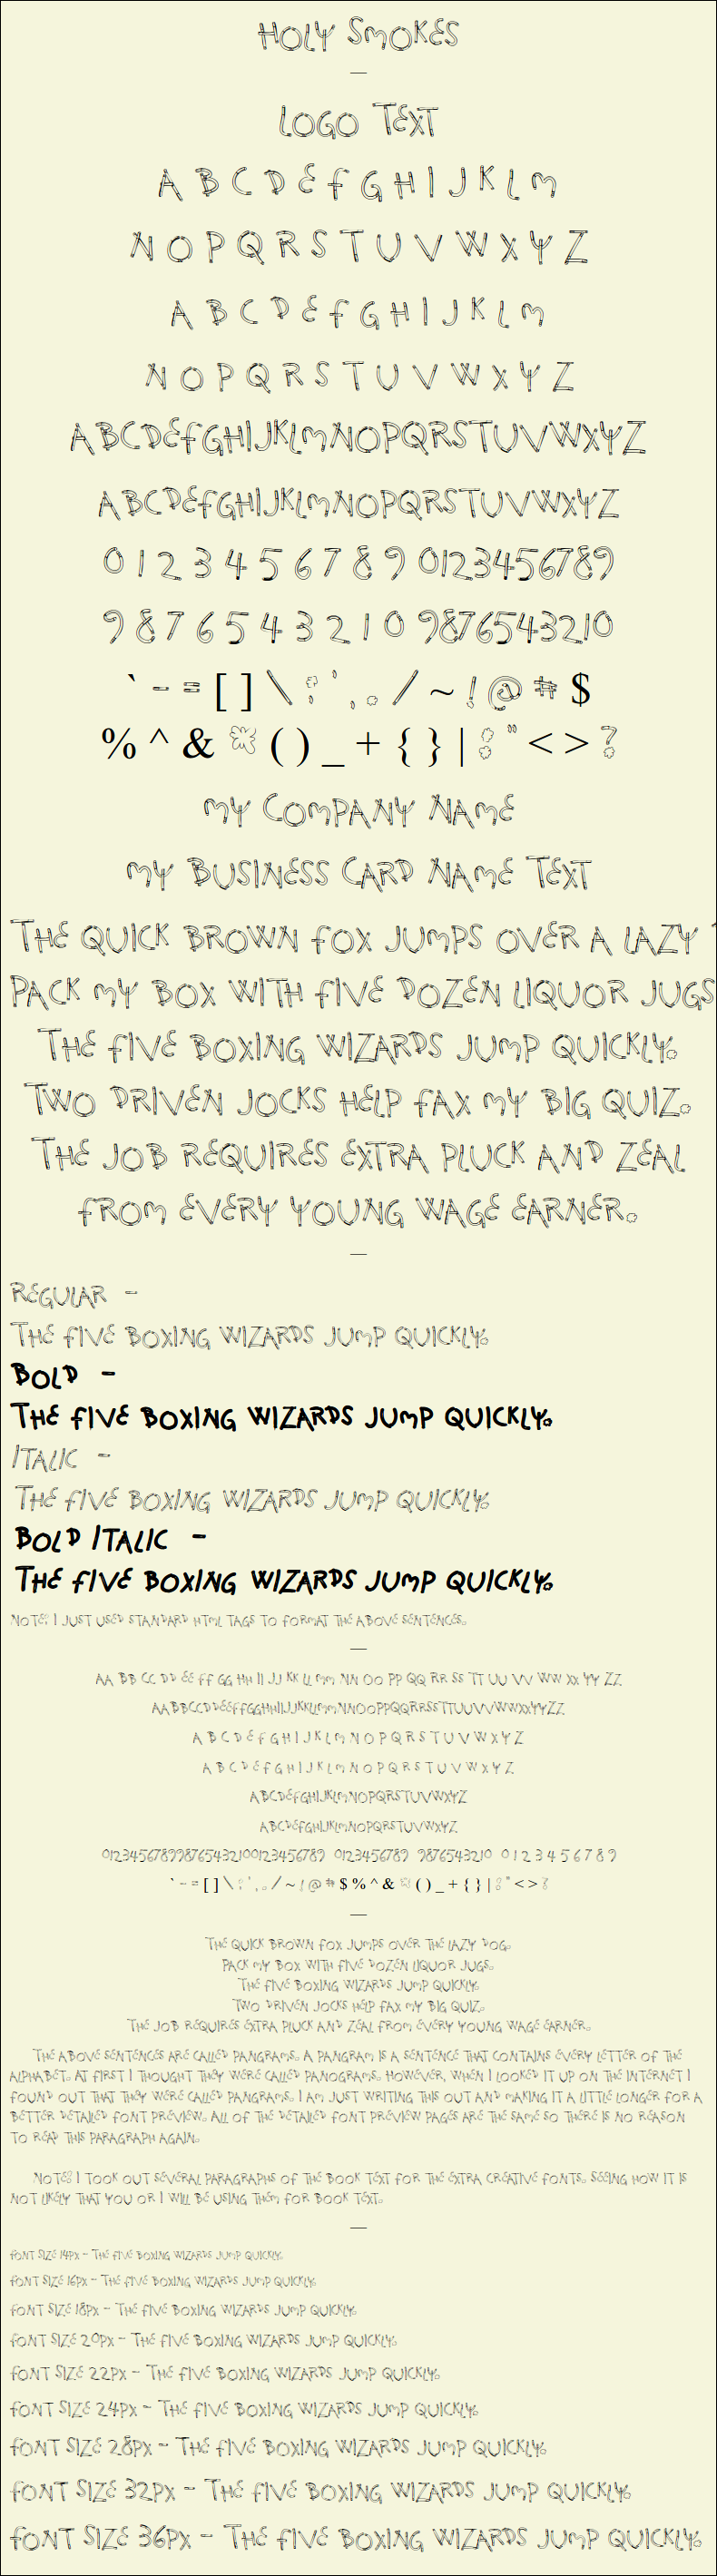 Holy Smokes
—
Logo Text
A B C D E F G H I J K L M
N O P Q R S T U V W X Y Z
a b c d e f g h i j k l m
n o p q r s t u v w x y z
ABCDEFGHIJKLMNOPQRSTUVWXYZ
abcdefghijklmnopqrstuvwxyz
0 1 2 3 4 5 6 7 8 9 0123456789
9 8 7 6 5 4 3 2 1 0 9876543210
` - = [ ] \ ; ' , . / ~ ! @ # $
% ^ & * ( ) _ + { } | : " < > ?
My Company Name
My Business Card Name Text
The quick brown fox jumps over a lazy
Pack my box with five dozen liquor jugs
The five boxing wizards jump quickly.
Two driven jocks help fax my big quiz.
The job requires extra pluck and zeal
from every young wage earner.
—
Regular -
The five boxing wizards jump quickly.
Bold -
The five boxing wizards jump quickly.
Italic -
The five boxing wizards jump quickly.
Bold Italic -
The five boxing wizards jump quickly.
Note: I just used standard html tags to format the above sentences.
—
Aa Bb Cc Dd Ee Ff Gg Hh Ii Jj Kk Ll Mm Nn Oo Pp Qq Rr Ss Tt Uu Vv Ww Xx Yy Zz
AaBbCcDdEeFfGgHhIiJjKkLlMmNnOoPpQqRrSsTtUuVvWwXxYyZz
A B C D E F G H I J K L M N O P Q R S T U V W X Y Z
a b c d e f g h i j k l m n o p q r s t u v w x y z
ABCDEFGHIJKLMNOPQRSTUVWXYZ
abcdefghijklmnopqrstuvwxyz
012345678998765432100123456789 0123456789 9876543210 0 1 2 3 4 5 6 7 8 9
` - = [ ] \ ; ' , . / ~ ! @ # $ % ^ & * ( ) _ + { } | : " < > ?
—
The quick brown fox jumps over the lazy dog.
Pack my box with five dozen liquor jugs.
The five boxing wizards jump quickly.
Two driven jocks help fax my big quiz.
The job requires extra pluck and zeal from every young wage earner.
The above sentences are called pangrams. A pangram is a sentence that contains every letter of the
alphabet. At first I thought they were called panograms. However, when I looked it up on the internet I
found out that they were called pangrams. I am just writing this out and making it a little longer for a
better detailed font preview. All of the detailed font preview pages are the same so there is no reason
to read this paragraph again.
Note: I took out several paragraphs of the book text for the extra creative fonts. Seeing how it is
not likely that you or I will be using them for book text.
—
Font size 14px - The five boxing wizards jump quickly.
Font size 16px - The five boxing wizards jump quickly.
Font size 18px - The five boxing wizards jump quickly.
Font size 20px - The five boxing wizards jump quickly.
Font size 22px - The five boxing wizards jump quickly.
Font size 24px - The five boxing wizards jump quickly.
Font size 28px - The five boxing wizards jump quickly.
Font size 32px - The five boxing wizards jump quickly.
Font size 36px - The five boxing wizards jump quickly.